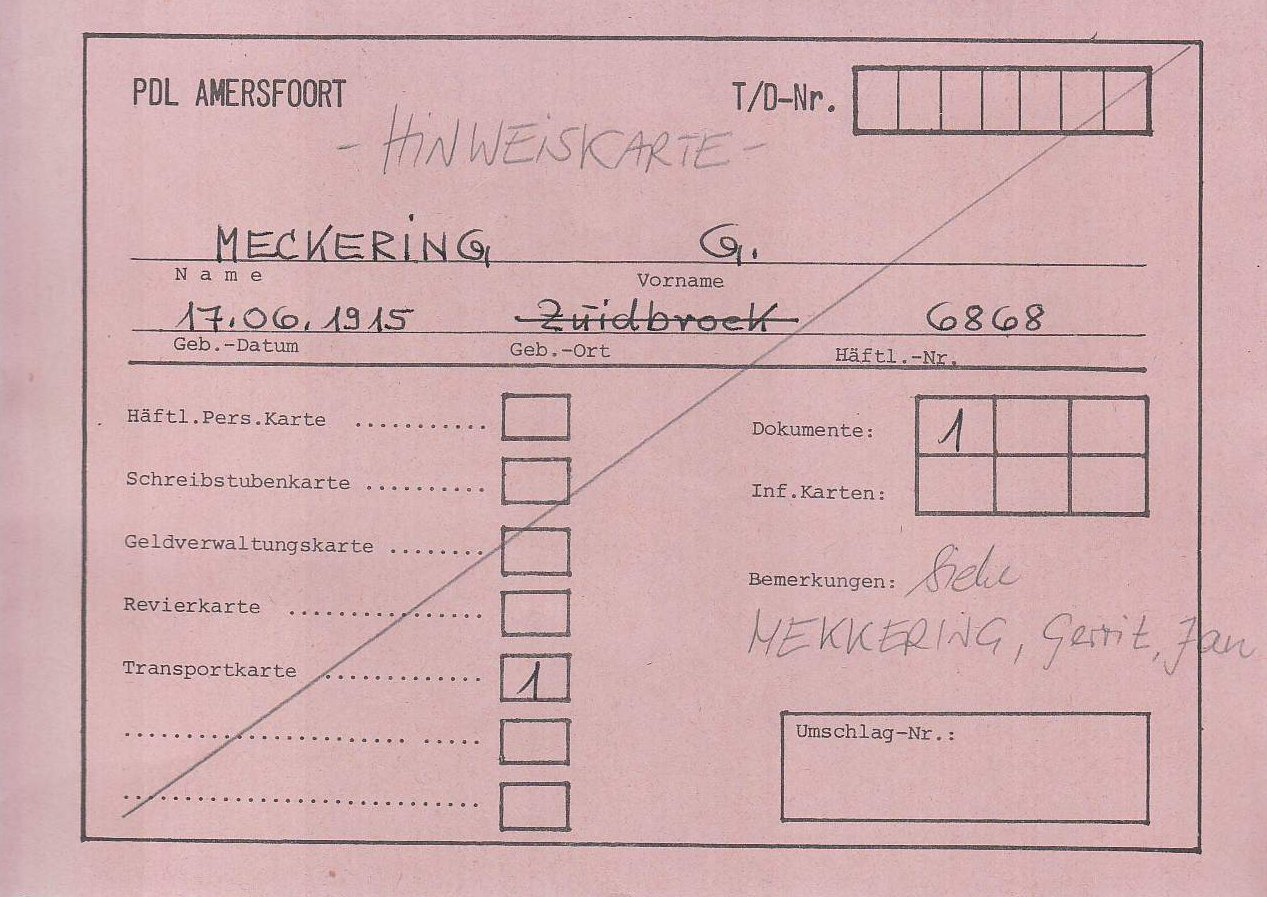 PDL AMERSFOORT T/D-Nr.
- HINWEISKARTE -
MECKERING G.
Name Vorname
17.06.1915 Zuidbroek 6868
Geb.-Datum Geb.-Ort Häftl.-Nr.
Häftl.Pers.Karte ........... Dokumente: 1
Schreibstubenkarte .......... Inf.Karten:
Geldverwaltungskarte ........
Bemerkungen: Siehe
Revierkarte ................
MEKKERING, Gerrit, Jan
Transportkarte ............. 1
Umschlag-Nr.: